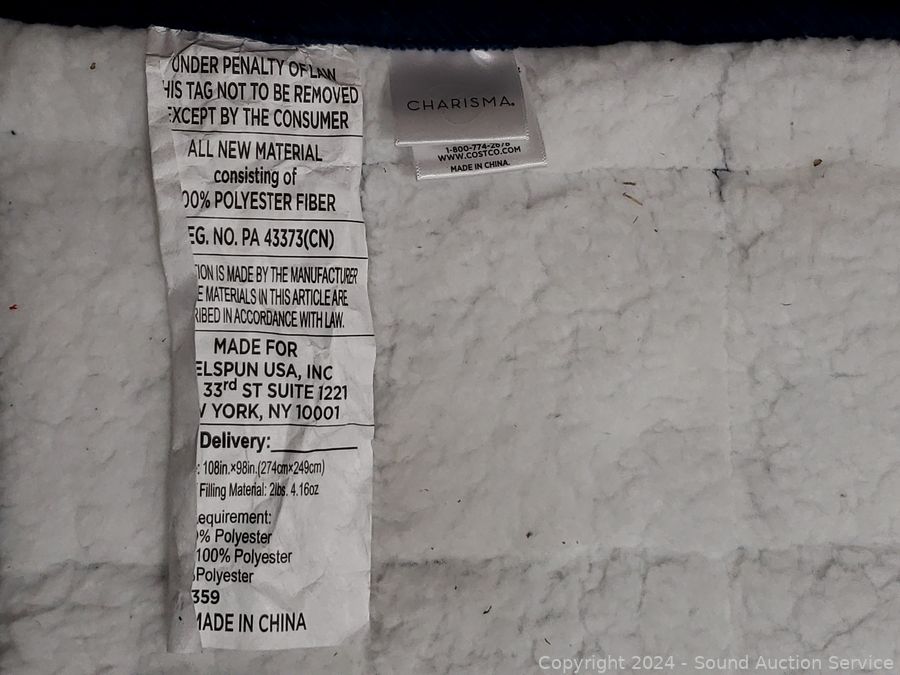 UNDER PENALTY OF LAW
HIS TAG NOT TO BE REMOVED
EXCEPT BY THE CONSUMER
ALL NEW MATERIAL
consisting of
00% POLYESTER FIBER
EG. NO. PA 43373(CN)
TION IS MADE BY THE MANUFACTURER
E MATERIALS IN THIS ARTICLE ARE
RIBED IN ACCORDANCE WITH LAW.
MADE FOR
ELSPUN USA, INC
33rd ST SUITE 1221
YORK, NY 10001
Delivery:
: 108in.×98in.(274cm×249cm)
Filling Material: 2lbs. 4.16oz
equirement:
% Polyester
100% Polyester
Polyester
359
MADE IN CHINA
CHARISMA.
1-800-774-2678
WWW.COSTCO.COM
MADE IN CHINA.
Copyright 2024 - Sound Auction Service